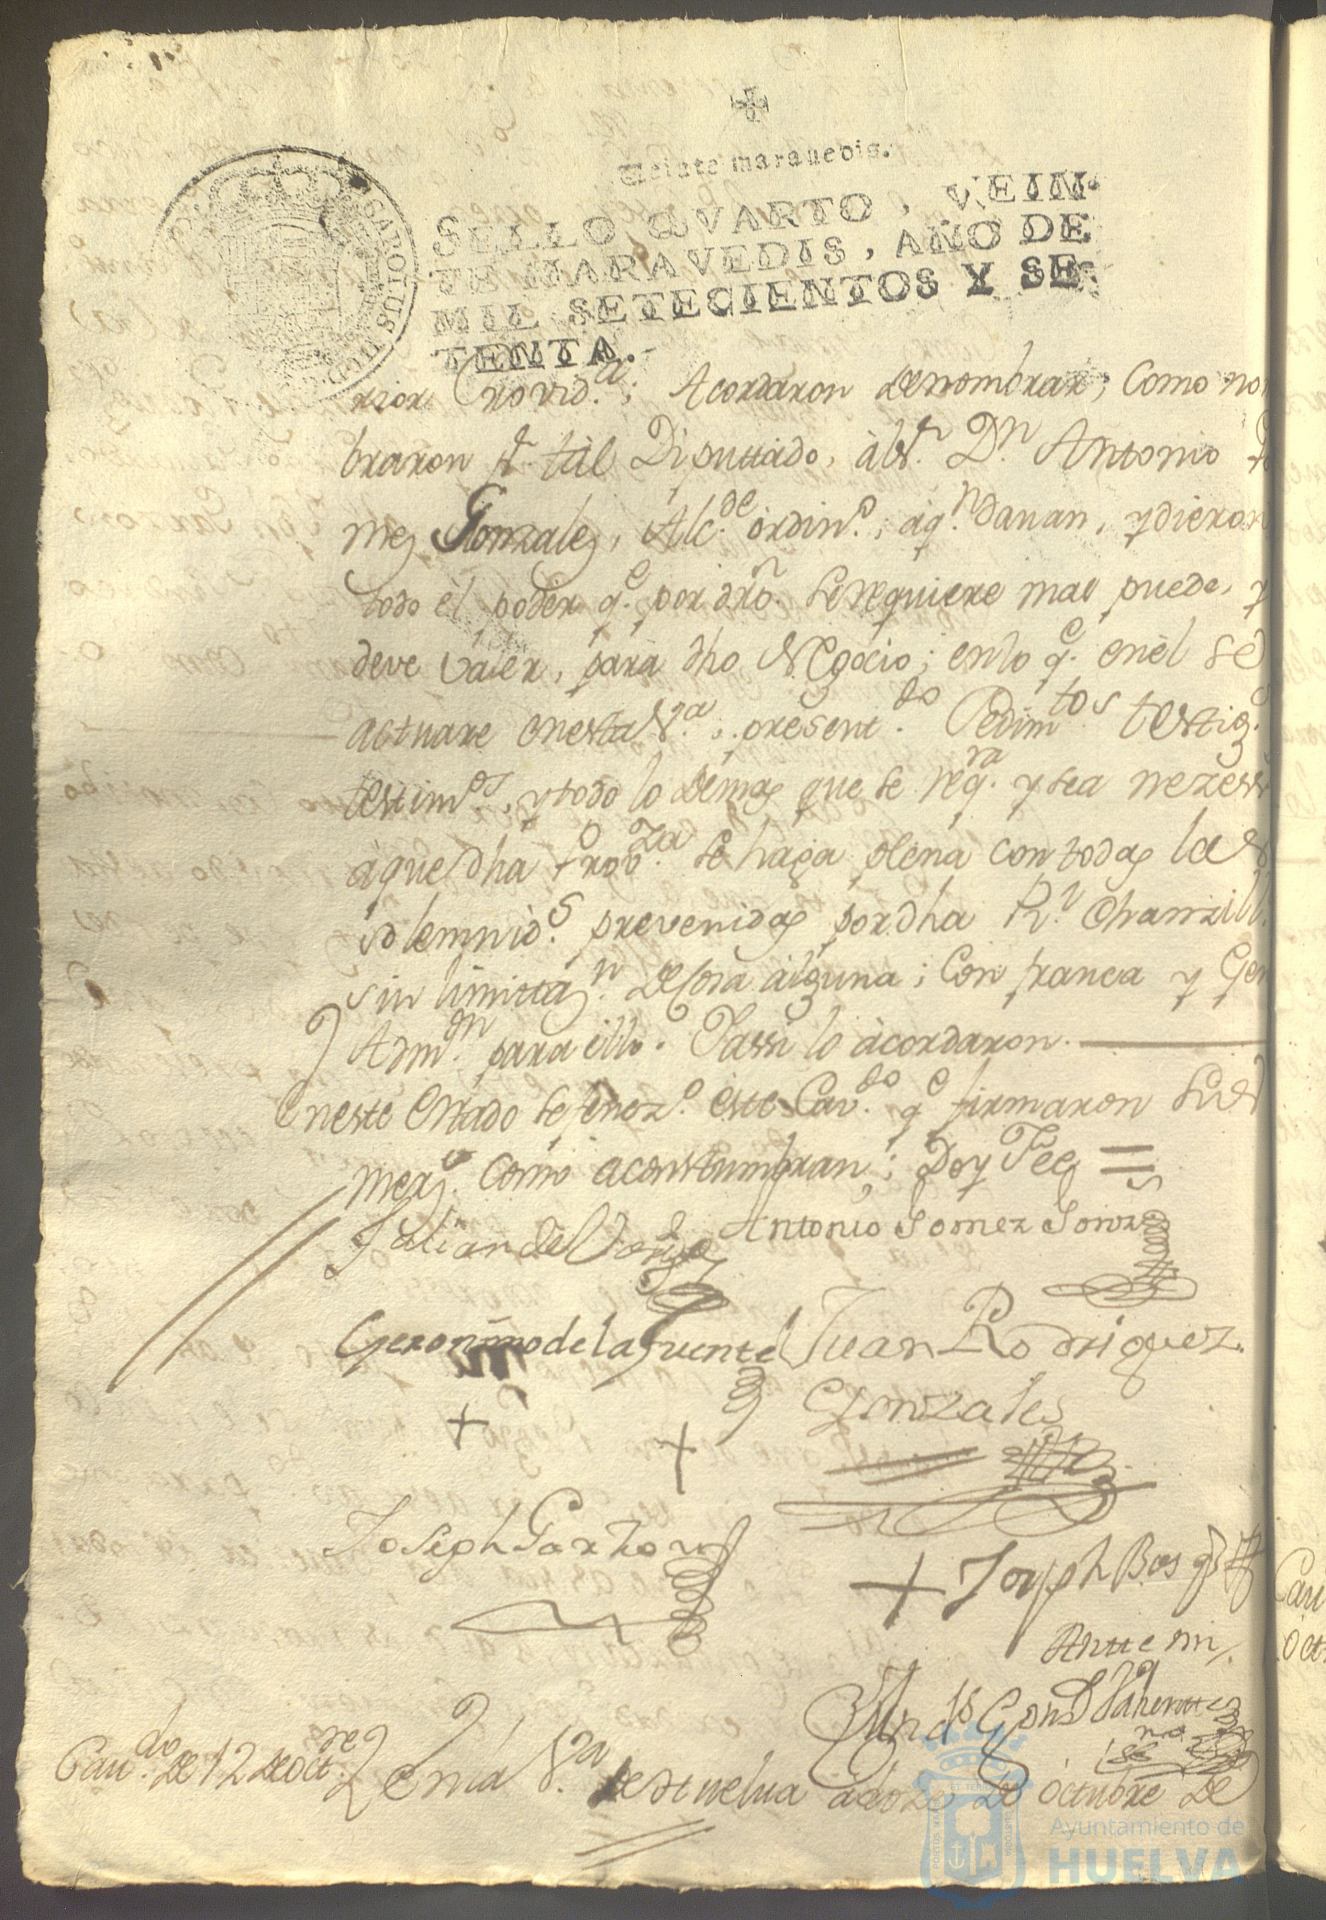 Veinte maravedis.
SELLO QVARTO, VEIN-
TE MARAVEDIS, AÑO DE
MIL SETECIENTOS Y SE-
TENTA.
CAROLUS
rior Provid.ª; Acordaron denombrar, Como no
braron Pr. tál Diputtado, àlSr. Dn. Antonio
mez Gonzalez, Alc.de òrdin.º, áq.n davan, ydieron
todo él poder q.e por dro. Serequiere mas puede, y
deve valer, para dho Negocio; enlo q.e enèl se
actuare enesta V.ª, present.do Pedim.tos testig.s
testim.os, ytodo lo demas que se req.ra y sea nezess
áque dha Prob.za se haga plena con todas las
solemnid.s prevenidas pordha R.l Chanzill.
sin limittaz.n decosa alguna; Con franca y Gen
Adm.on para èllo. Yassi lo àcordaron.
Eneste Estado sefenez.o èste Cav.do q.e firmaron Sus
merz.s como acostumbran; Doy Fee =
Julian del
Antonio Gomez Gonz
Geronimo de la Fuente
Juan Rodriguez
Gonzales
Joseph Garzon
Joseph Bas
Antte mi
Cav.do de 12 de oct.re
Enla V.ª de Huelva àdoze de òctubre de
Cav
oct
Ayuntamiento de
HUELVA